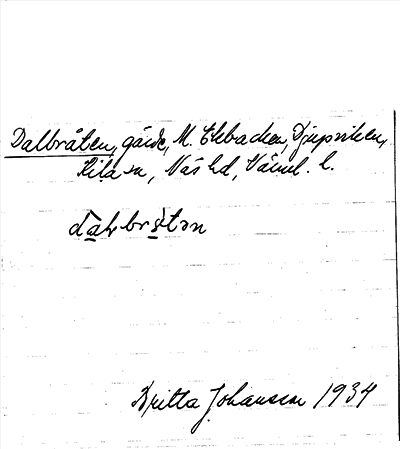 Dalbråten, gärde, M. Ekbacken, Djupviken,
Kila sn, Näs hd, Värml. l.
dalbråtən
Britta Johansson 1934